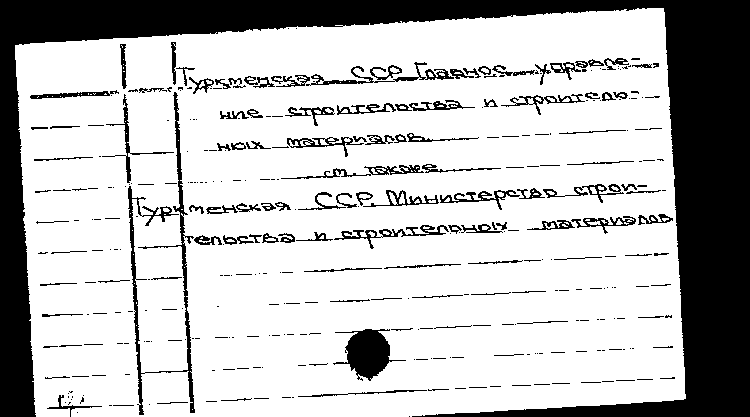 Туркменская ССР Главное управле-
ние строительства и строитель-
ных материалов.
см. также.
Туркменская ССР. Министерство строи-
тельства и строительных материалов